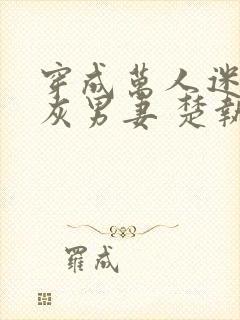 穿成萬人迷
灰男妻 楚執
羅成